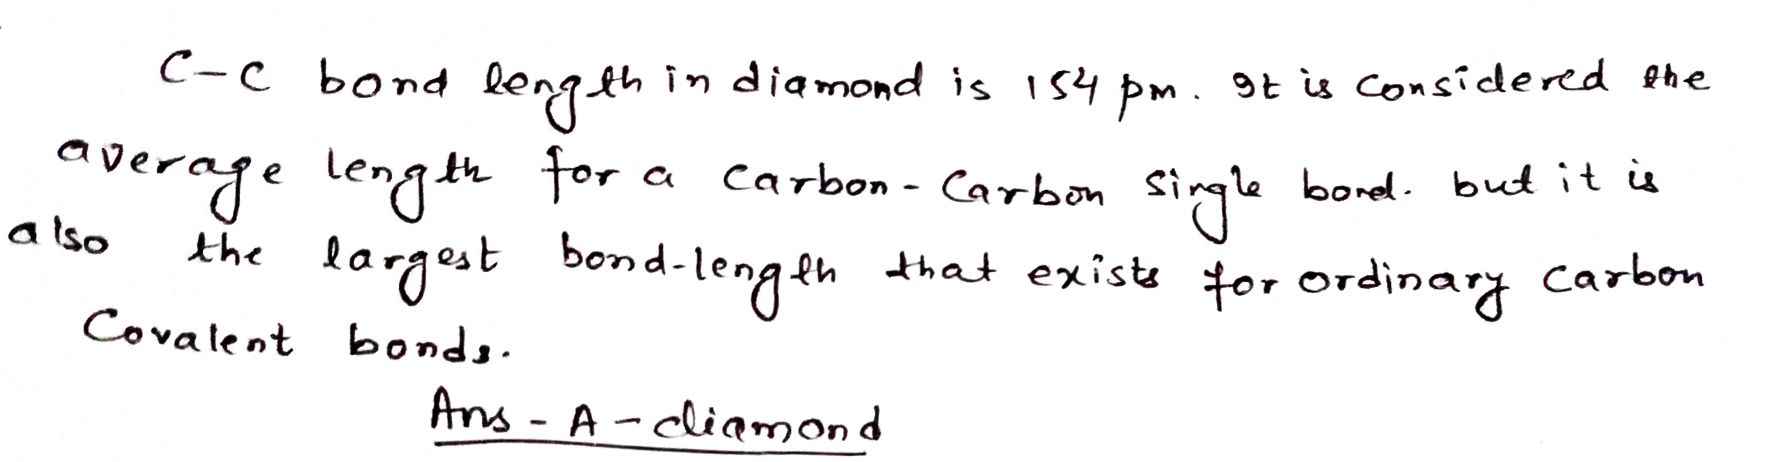 C-C bond length in diamond is 154 pm. It is considered the
average length for a carbon - carbon single bond. but it is
also the largest bond-length that exists for ordinary carbon
Covalent bonds.
Ans - A - diamond